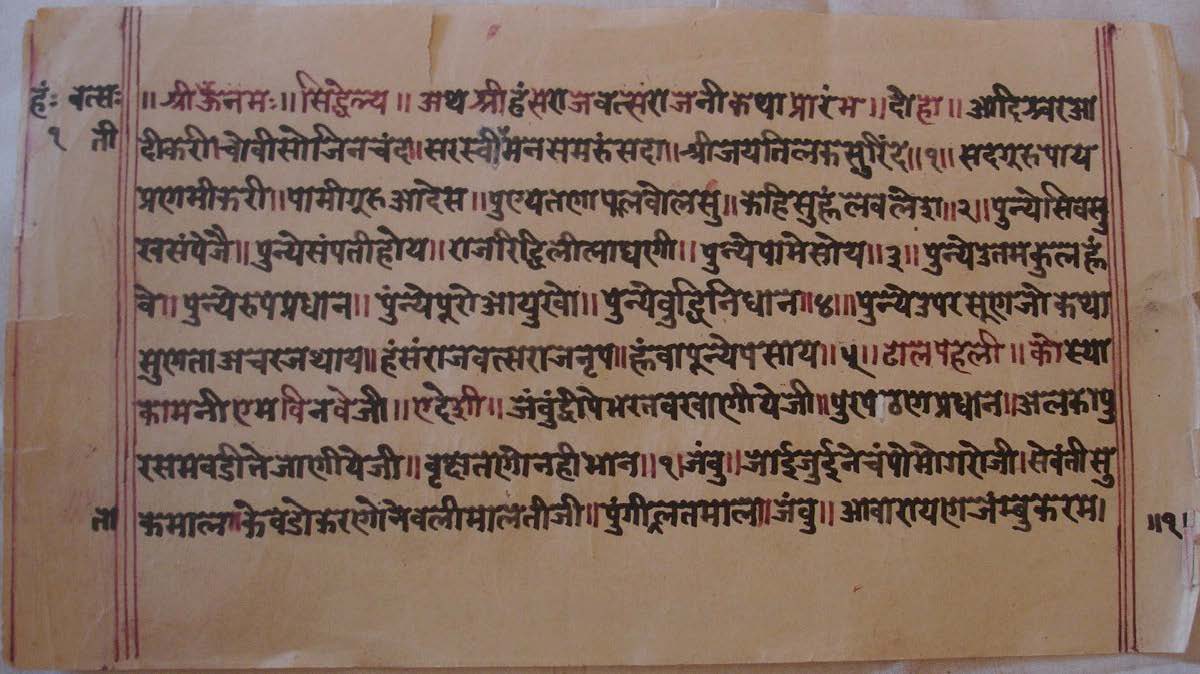 हंः वत्सः ॥ श्री ऊँ नमः ॥ सिद्धेभ्य ॥ अथ श्री हंसराजवत्सराजनी कथा प्रारंभ ॥ दोहा ॥ आदिश्वरआ
१ ती दीकरी। चोवीसो जिनचंद॥ सरस्वीमनसमरुंसदा॥ श्रीजयतिलकसुरिंद॥१॥ सदगूरुपाय
प्रणमीकरी॥ पामीगूरुआदेस॥ पुण्यतणा फूलवोलसुं॥ कहिसुं
खसंपजै॥ पुन्येसंपतीहोय॥ राजरिद्धिलीलाघणी॥ पुन्येपामेसोय॥३॥ पुन्येउतमकुल
वे॥ पुन्येरुपप्रधान॥ पुंन्येपूरोआयुखो॥ पुन्येवुद्धिनिधान॥४॥ पुन्येउपरसूणजोकथा
सुणताअचरजथाय॥ हंसंराजवत्सराजनृप॥ पून्यपसाय॥५॥ ढालपेहेली॥
कामनीएमविनवेजी॥ एदेशी॥ जंबुंद्वीपेभरतवखाणीयेजी॥ पुरपेठाणप्रधान॥ अलकापु
रसमवडीनेजाणीयेजी॥ नहीभान॥१॥ जंबु॥ जाईजुईनेचंपोमोगरोजी॥ सेवंतीसु
ता कमाल॥ केवडोकरणोनेवलीमालतीजी॥ पुंगीफूलतमाल॥ जंबु॥ आंबारायणजंम्बुकरम। ॥१॥